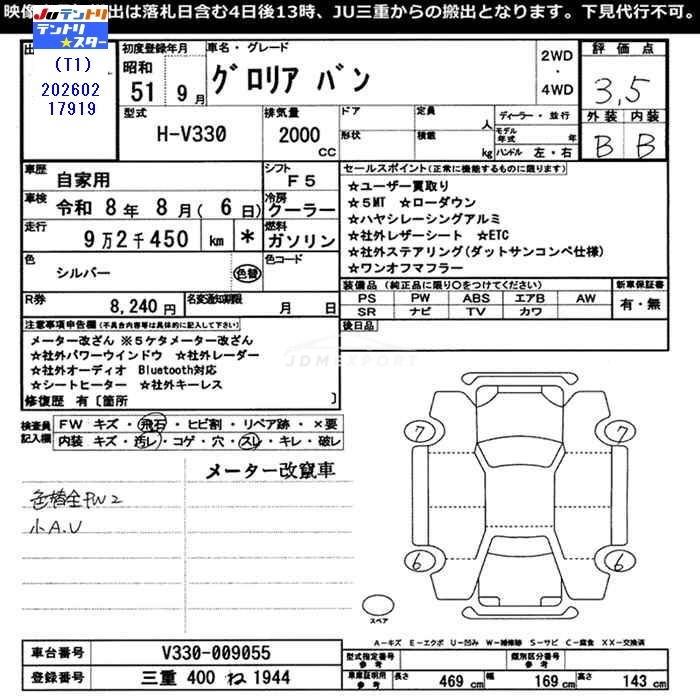 映像 出は落札日含む4日後13時、JU三重からの搬出となります。下見代行不可。
JU テントリ
テントリ★スター
(T1)
202602
17919
初度登録年月 車名・グレード 2WD・4WD 評価点
昭和 51 9月 グロリア バン 3,5
型式 排気量 ドア 定員 人 ディーラー・並行 外装 内装
H-V330 2000 CC 形状 積載 kg モデル年式 年 ハンドル 左・右 B B
車歴 自家用 シフト F5 セールスポイント(正常に機能するものに限ります)
車検 令和 8年 8月( 6日) 冷房 クーラー
走行 9万2千450 km * 燃料 ガソリン
★ユーザー買取り
★5MT ★ローダウン
★ハヤシレーシングアルミ
★社外レザーシート ★ETC
★社外ステアリング(ダットサンコンペ仕様)
★ワンオフマフラー
色 シルバー 色替 色コード
装備品(純正品に限り〇をつけてください) 新車保証書
PS PW ABS エアB AW 有・無
SR ナビ TV カワ
R券 8,240円 名変通知期限 月 日
後日品
注意事項申告欄(不具合内容等は具体的に記入して下さい)
メーター改ざん ※5ケタメーター改ざん
☆社外パワーウインドウ ★社外レーダー
☆社外オーディオ Bluetooth対応
★シートヒーター ★社外キーレス
修復歴 有〔箇所 〕
JDMEXPORT
検査員記入欄 FW キズ・飛石・ヒビ割・リペア跡・×要
内装 キズ・汚レ・コゲ・穴・スレ・キレ・破レ
メーター改竄車
色替全PW2
小A.U
7 7
6 6
スペア
A-キズ E-エクボ U-凹み W-補修跡 S-サビ C-腐食 XX-交換済
車台番号 V330-009055 型式指定番号 参考 類別区分番号 参考
登録番号 三重 400 ね 1944 車庫証明用 参考 長さ 469cm 幅 169cm 高さ 143cm